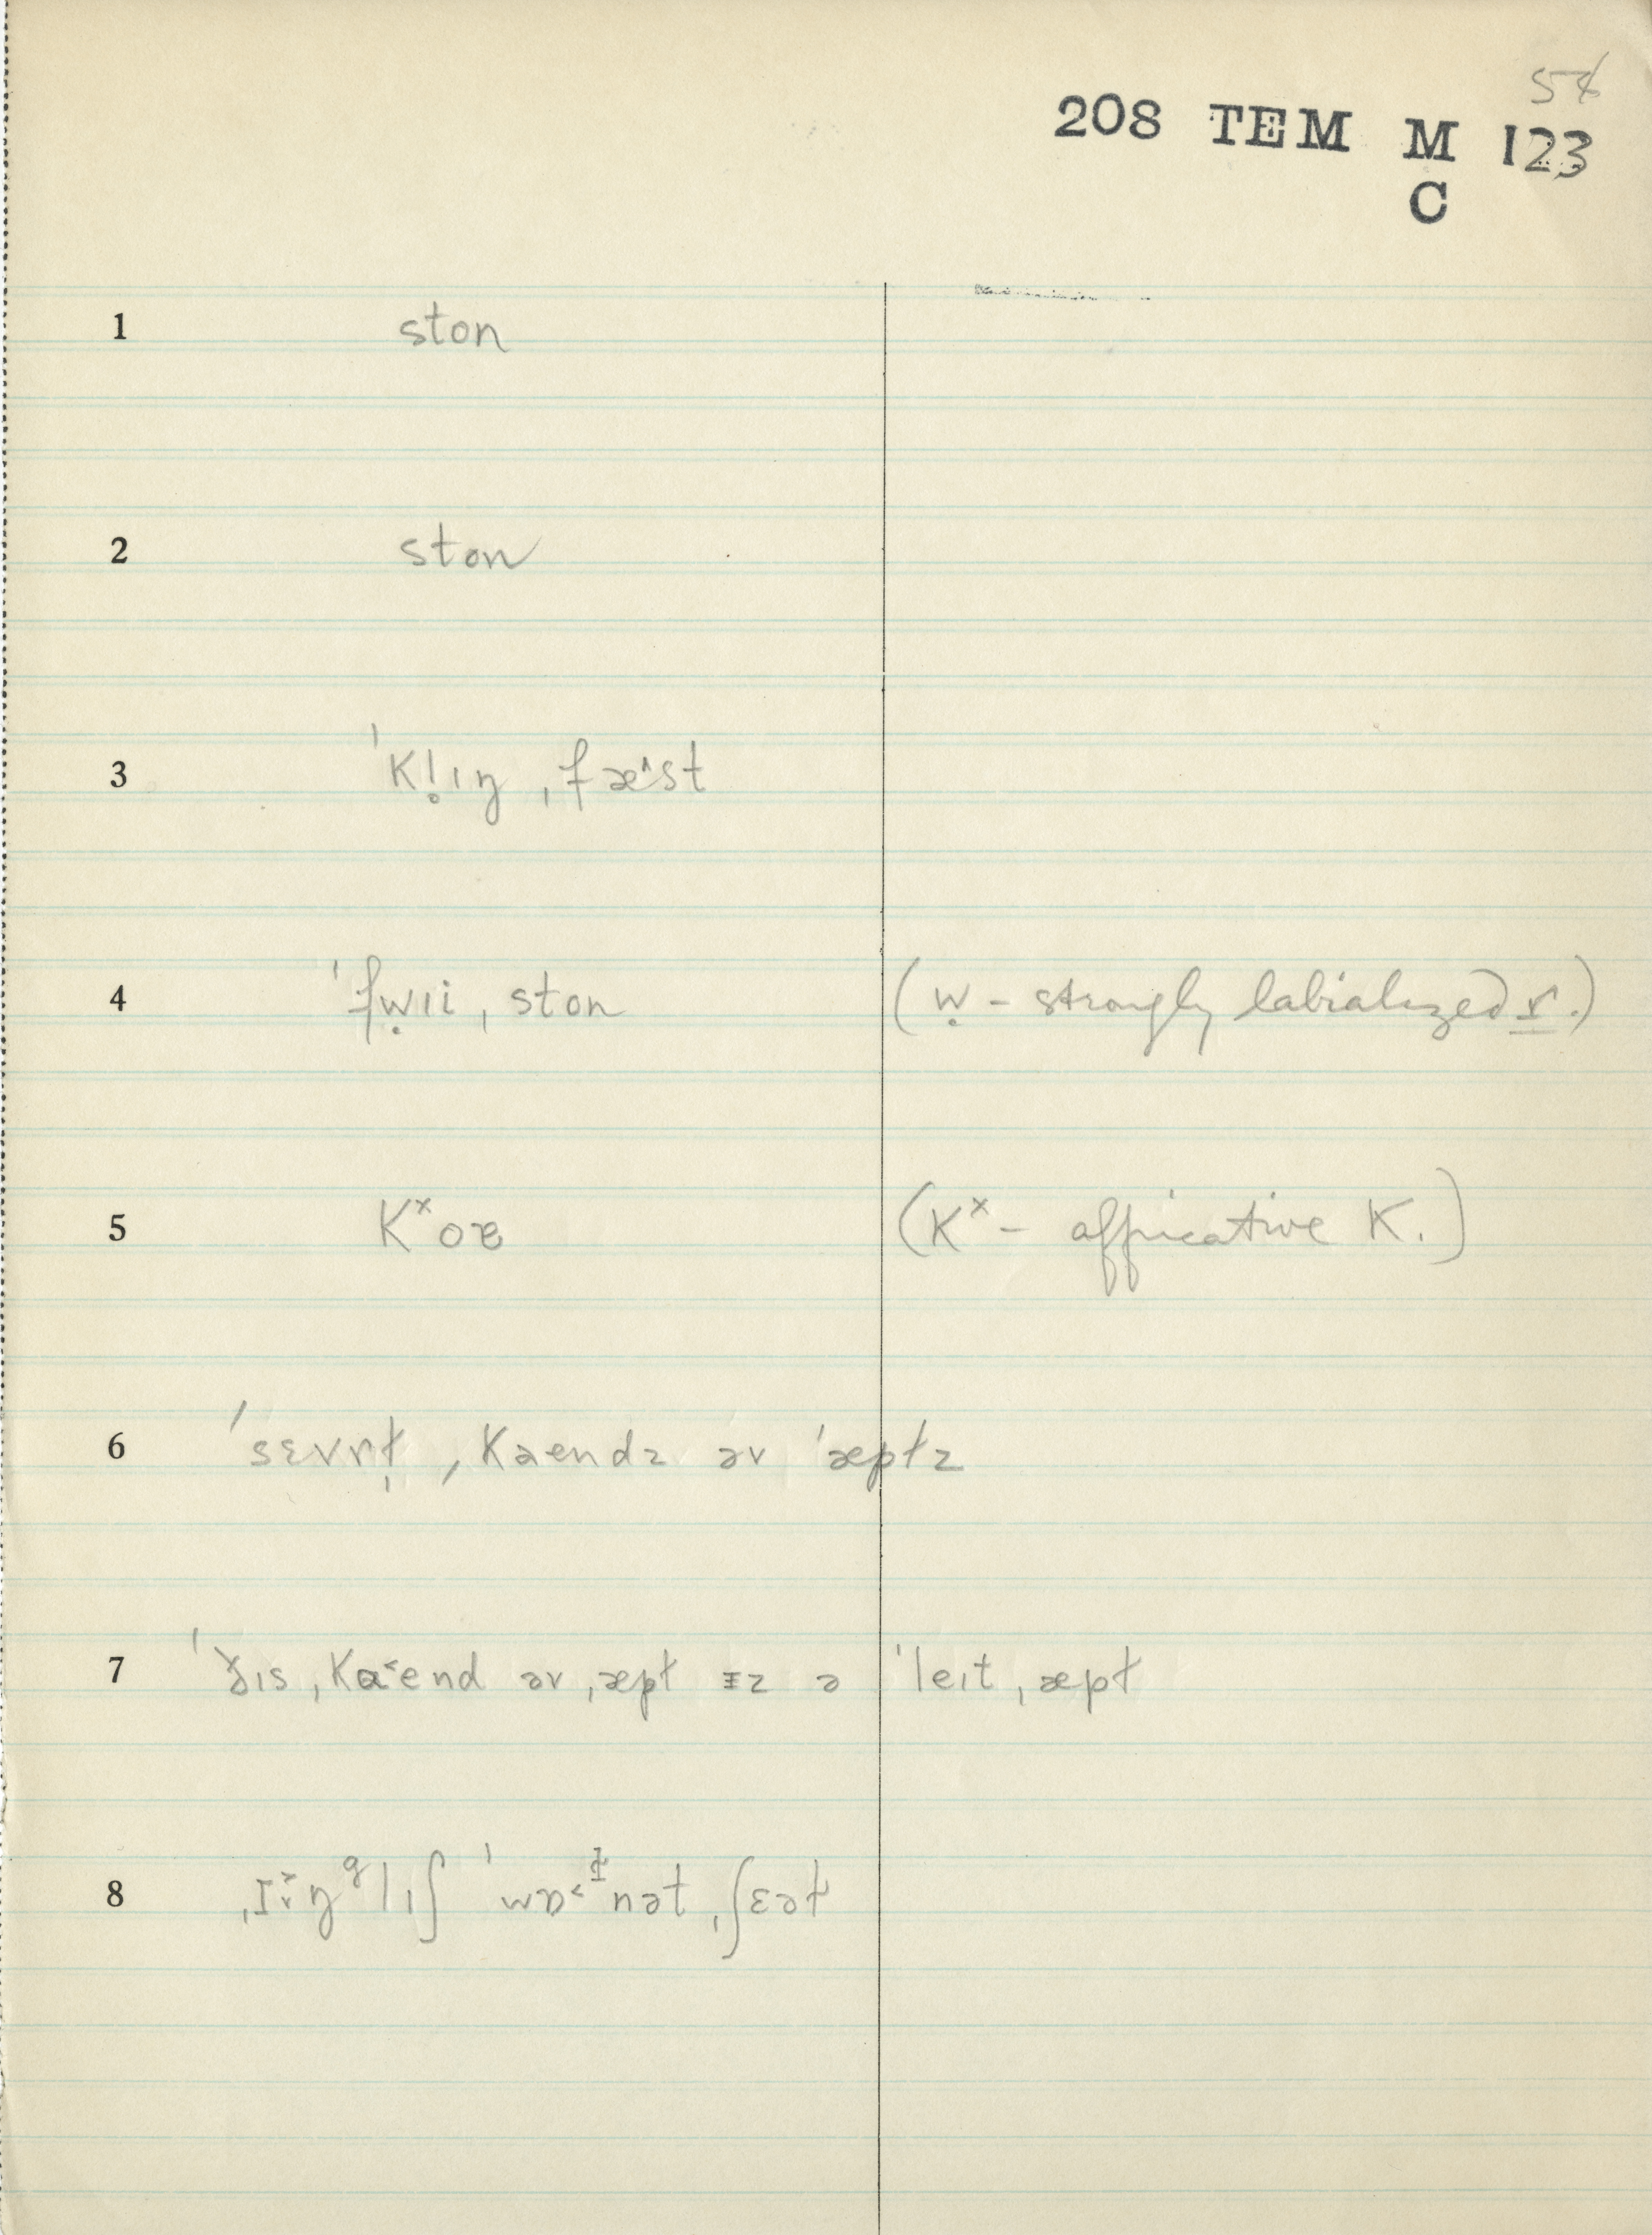 208 TEM M 123
C
1 ston
2 ston
3 ˈKl̥ıŋ ˌfæ˄st
4 ˈfw̤ıi ˌston (w̤ - strongly labialized r.)
5 Kˣoɐ (Kˣ - affricative K.)
6 ˈsɛvrt̩ ˌKaendz əv ˈæpɫz
7 ˈðıs ˌKa˂end əv ˌæpɫ ɪz ə ˈleıt ˌæpɫ
8 ˈwɒ˂ɫnət ˌʃɛət